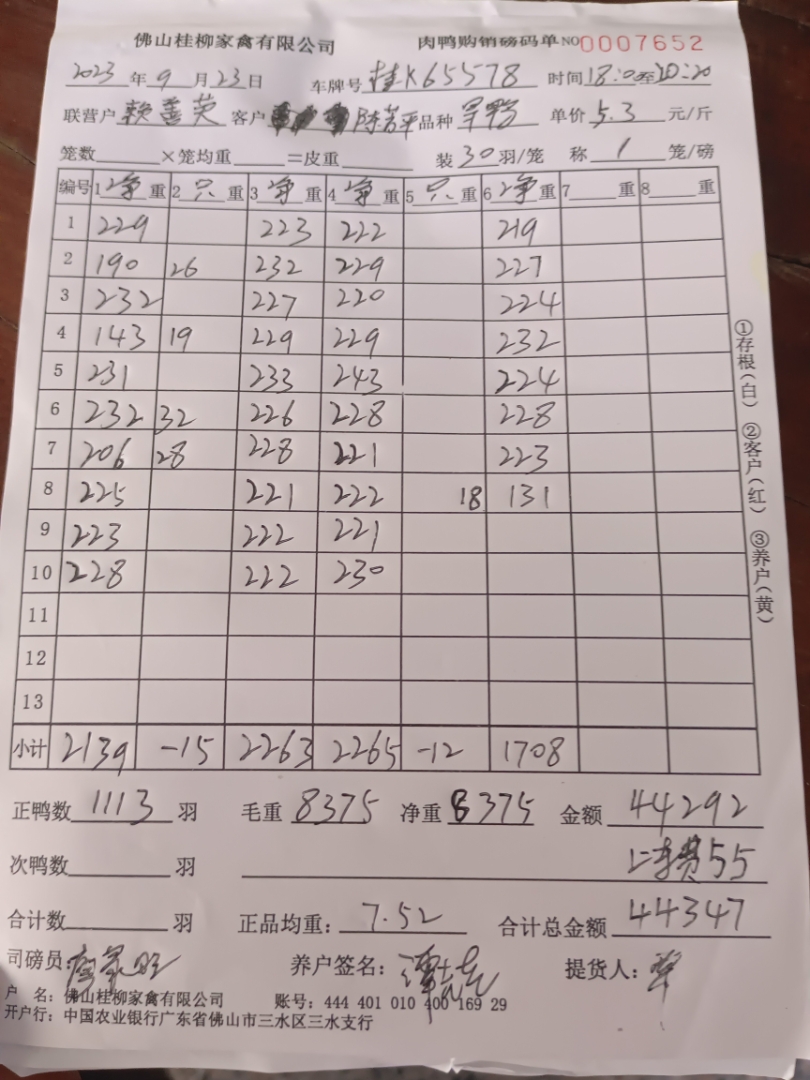 佛山桂柳家禽有限公司 肉鸭购销磅码单 NO 0007652
2023年9月23日 车牌号 桂K65578 时间18:0至20:20
联营户 赖善英 客户 陈芳平 品种 旱鸭 单价 5.3 元/斤
笼数 ×笼均重 =皮重 装30羽/笼 称 1 笼/磅
编号 1净重 2只重 3净重 4净重 5只重 6净重 7 重 8 重
1 229 223 222 219
2 190 26 232 229 227
3 232 227 220 224
4 143 19 229 229 232
5 231 233 243 224
6 232 32 226 228 228
7 206 28 228 221 223
8 225 221 222 18 131
9 223 222 221
10 228 222 230
11
12
13
小计 2139 -15 2263 2265 -12 1708
正鸭数 1113 羽 毛重 8375 净重 8375 金额 44292
次鸭数 羽 上车费55
合计数 羽 正品均重: 7.52 合计总金额 44347
司磅员: 养户签名: 提货人:
户 名: 佛山桂柳家禽有限公司 账号: 444 401 010 400 169 29
开户行: 中国农业银行广东省佛山市三水区三水支行
①存根(白) ②客户(红) ③养户(黄)